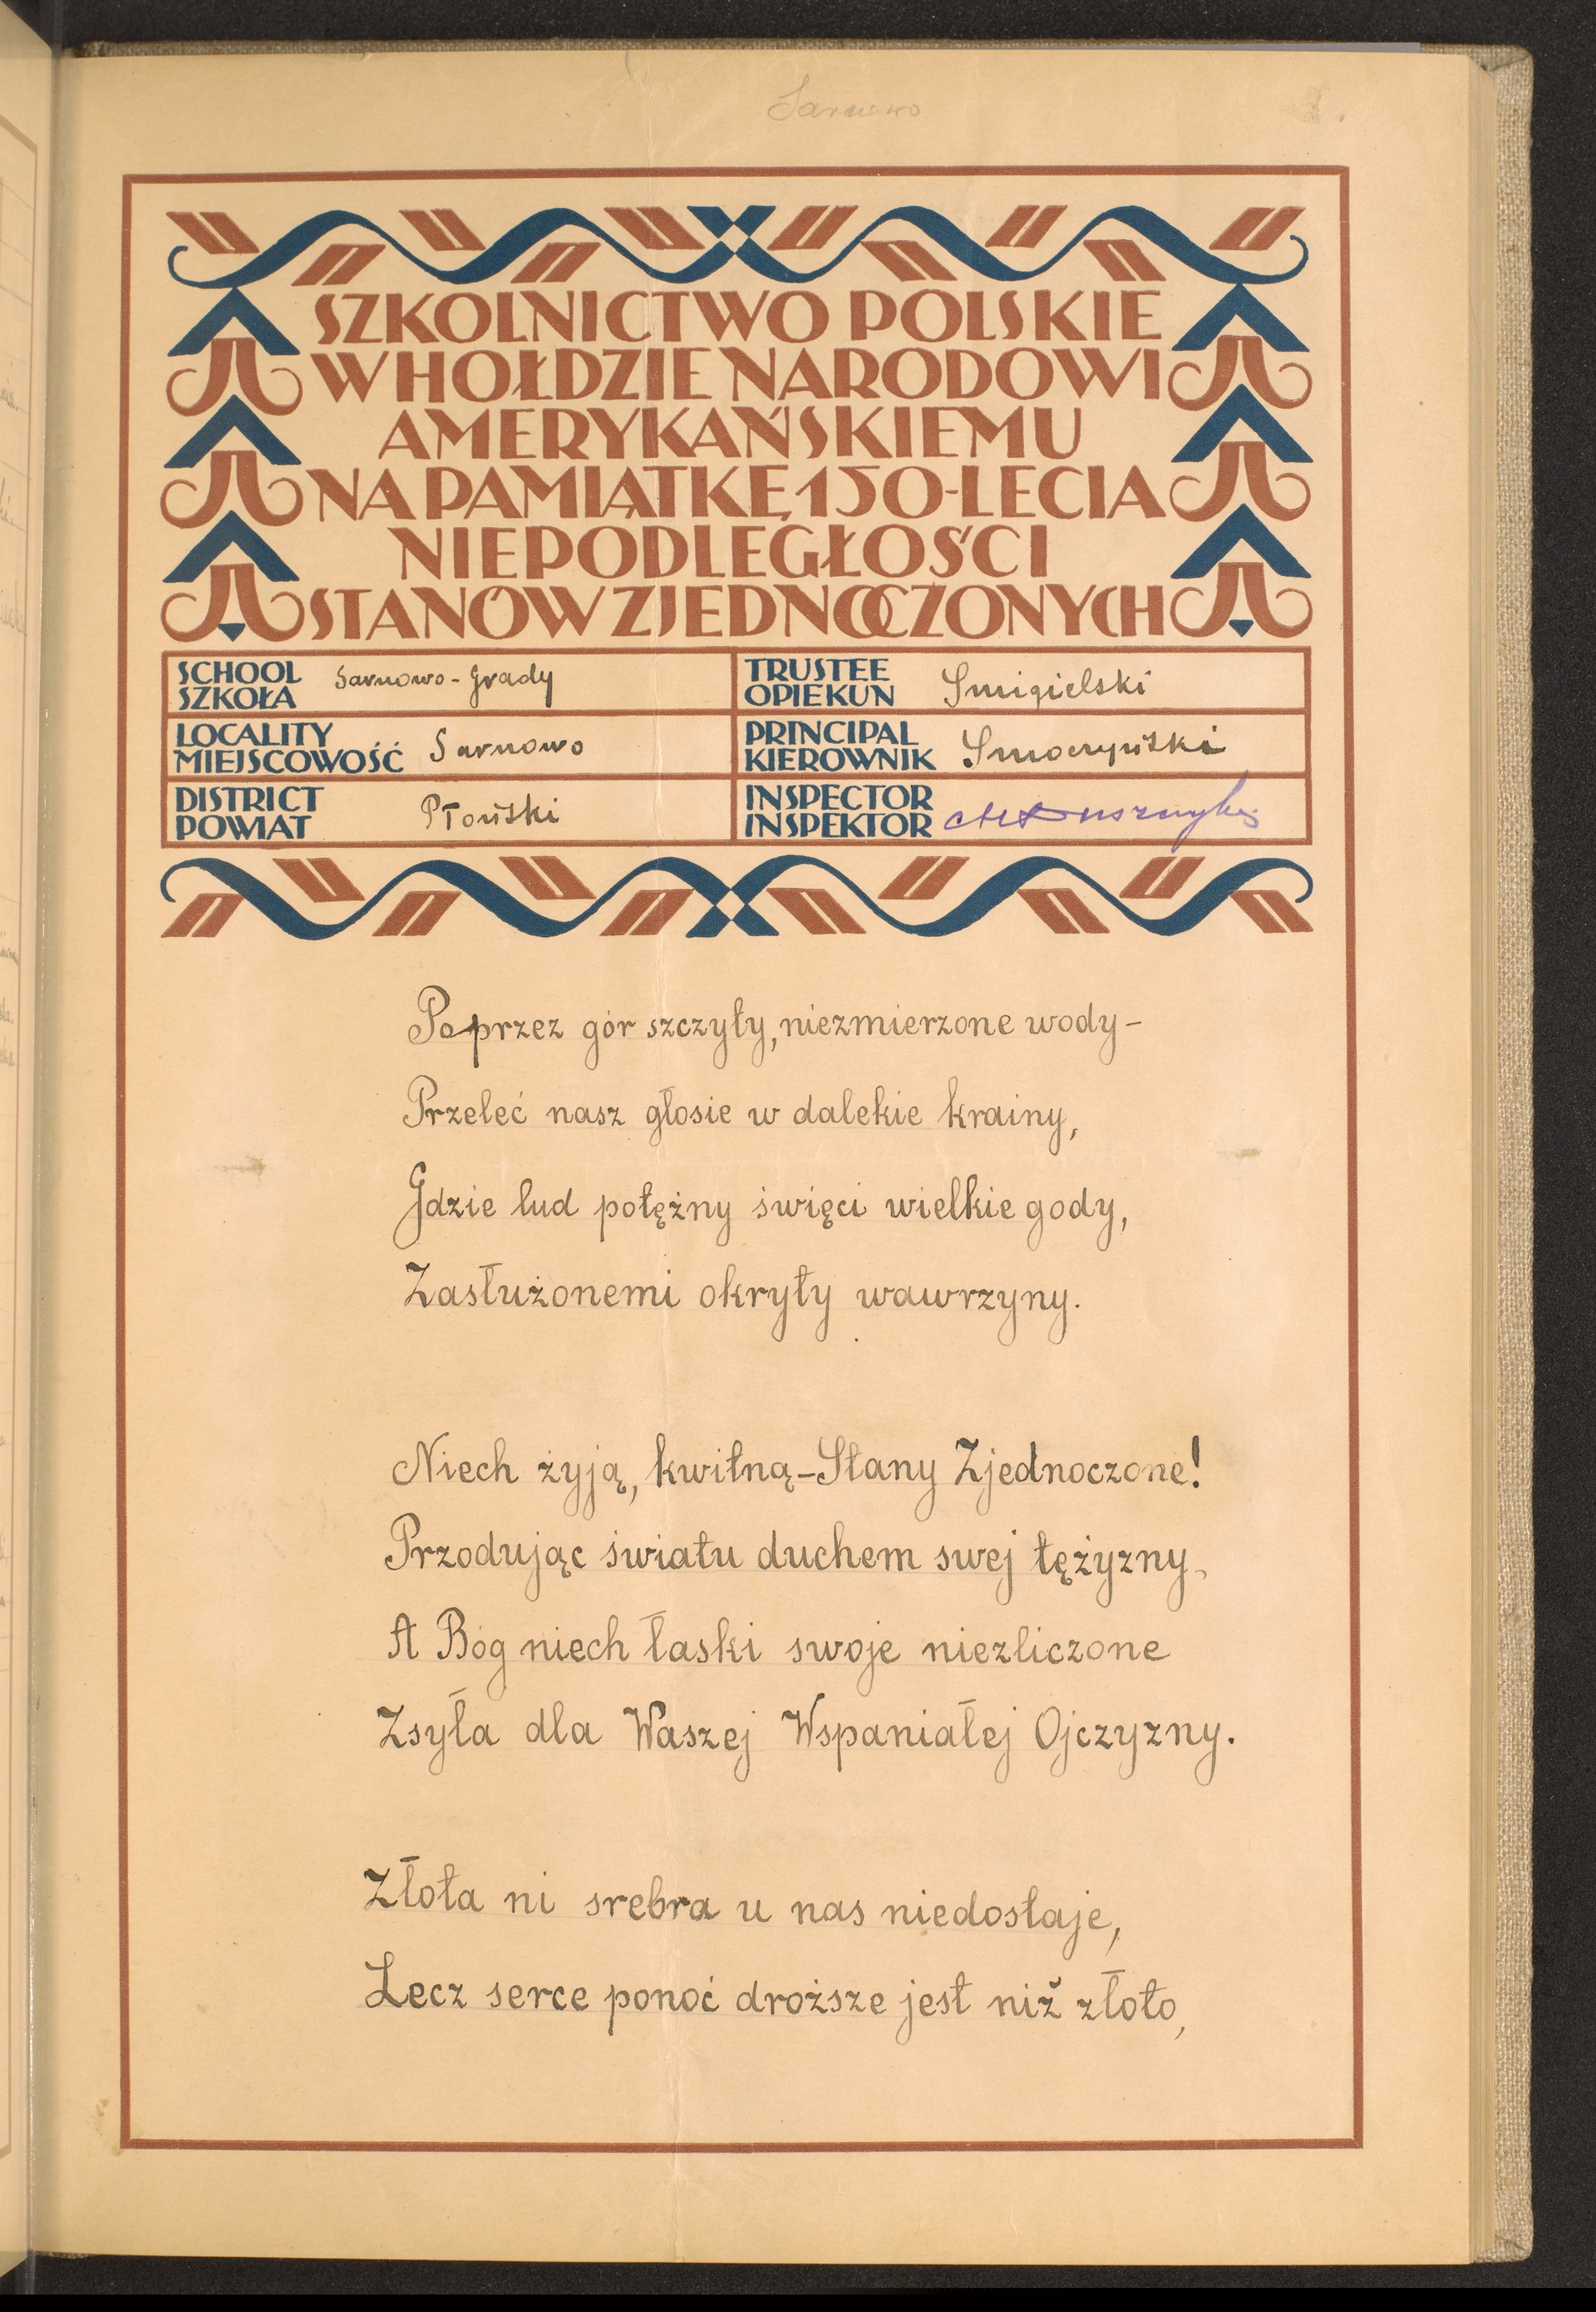 Sarnowo
SZKOLNICTWO POLSKIE
W HOŁDZIE NARODOWI
AMERYKAŃSKIEMU
NA PAMIĄTKĘ 150-LECIA
NIEPODLEGŁOŚCI
STANÓW ZJEDNOCZONYCH
SCHOOL
SZKOŁA Sarnowo-Grady
TRUSTEE
OPIEKUN Smigielski
LOCALITY
MIEJSCOWOŚĆ Sarnowo
PRINCIPAL
KIEROWNIK Smoczyński
DISTRICT
POWIAT Płoński
INSPECTOR
INSPEKTOR
Poprzez gór szczyty, niezmierzone wody-
Przeleć nasz głosie w dalekie krainy,
Gdzie lud potężny święci wielkie gody,
Zasłużonemi okryty wawrzyny.
Niech żyją, kwitną-Stany Zjednoczone!
Przodując światu duchem swej tężyzny,
A Bóg niech łaski swoje niezliczone
Zsyła dla Waszej Wspaniałej Ojczyzny.
Złota ni srebra u nas niedostaje,
Lecz serce ponoć droższe jest niż złoto,